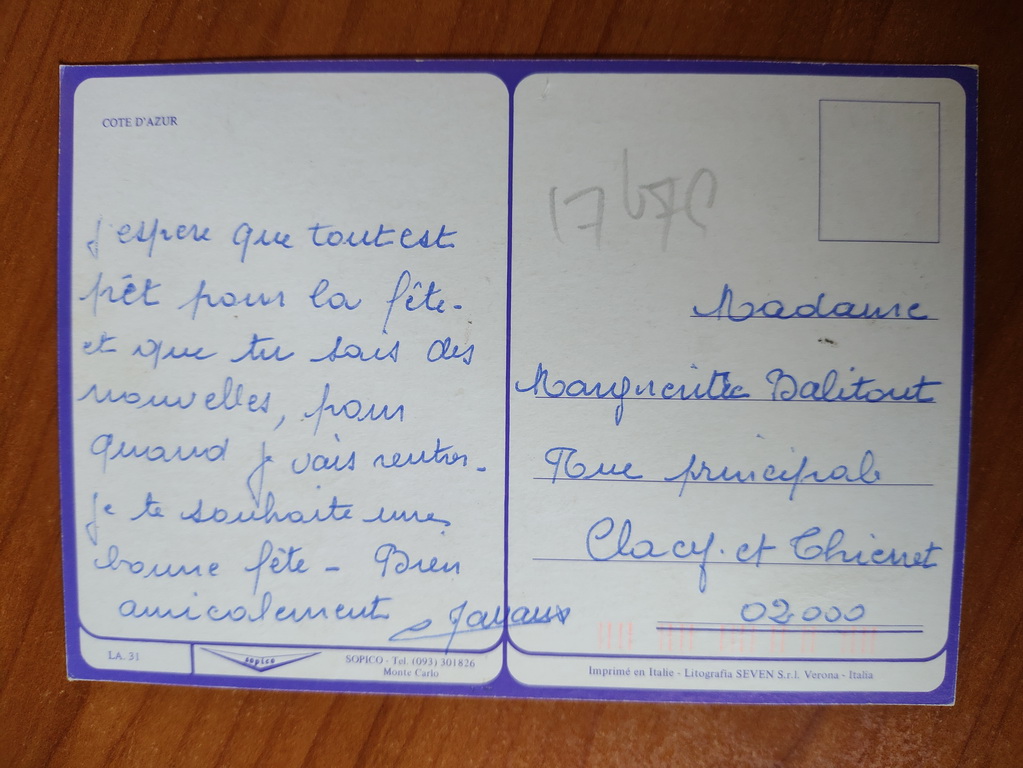 COTE D'AZUR
j'espere que tout est
prêt pour la fête -
et que tu sais des
nouvelles, pour
quand je vais rentrer -
je te souhaite une
bonne fête - Bien
amicalement
LA. 31
sopico
SOPICO - Tel. (093) 301826
Monte Carlo
Madame
Marguerite Balitout
Rue principale
Clacy et Thierret
02000
Imprimé en Italie - Litografia SEVEN S.r.l. Verona - Italia